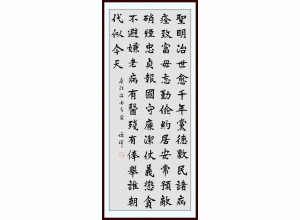 聖明治世愈千年黨德數民諳病
奎致富毋忘勤儉約居安常預敵
硝煙忠貞報國守廉潔仗義懲貪
不避嫌老病有醫殘有俸舉誰朝
代似今天